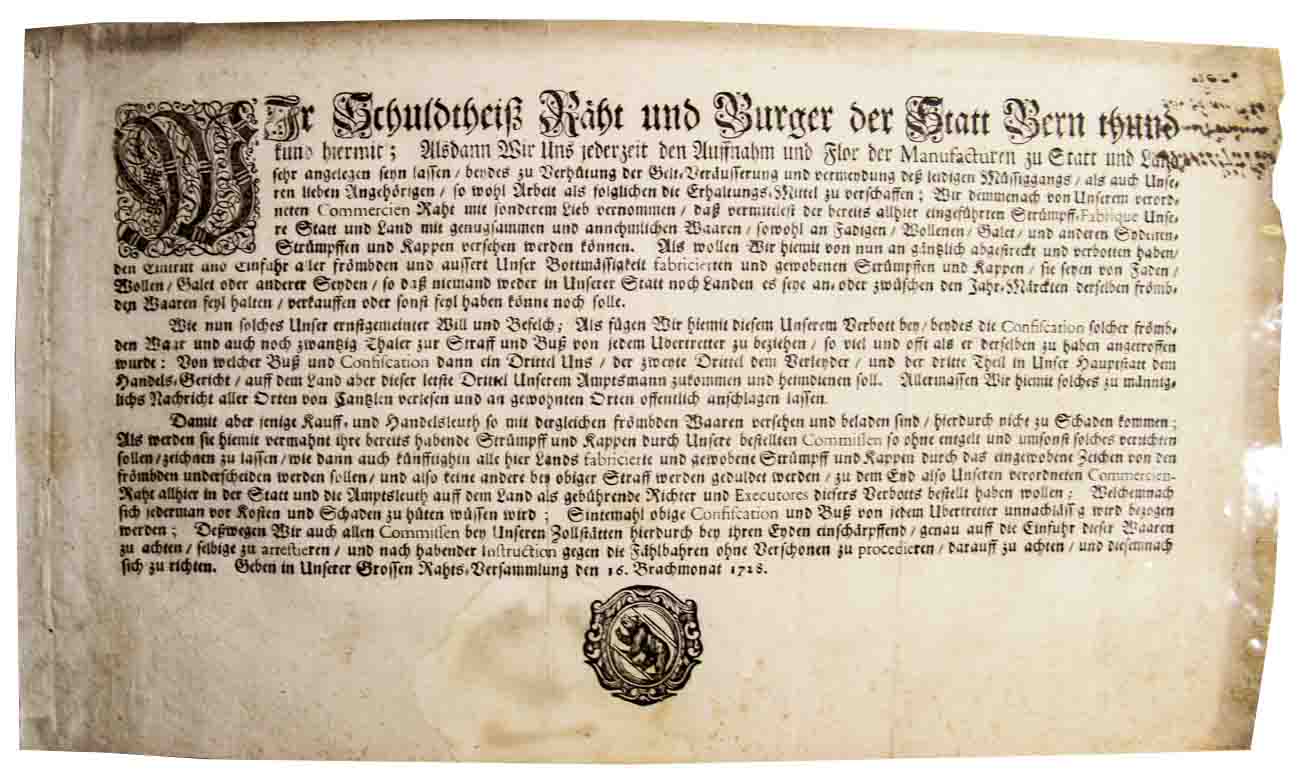 WIr Schuldtheiß Räht und Burger der Statt Bern thund
kund hiermit; Alsdann Wir Uns jederzeit den Auffnahm und Flor der Manufacturen zu Statt und Land
sehr angelegen seyn lassen / beydes zu Verhütung der Gelt-Veräusserung und vermeydung deß leidigen Müssiggangs / als auch Unse-
ren lieben Angehörigen / so wohl Arbeit als folglichen die Erhaltungs-Mittel zu verschaffen; Wir demmenach von Unserem verord-
neten Commercien Raht mit sonderem Lieb vernommen / daß vermittlest der bereits allhier eingeführten Strümpff-Fabrique Unse-
re Statt und Land mit genugsammen und annemlichen Waaren / sowohl an Fadigen / Wollenen / Galet / und anderen Seydenen-
Strümpffen und Kappen versehen werden können. Als wollen Wir hiemit von nun an gäntzlich abgestreckt und verbotten haben /
den Eintritt und Einfuhr aller frömbden und aussert Unser Bottmässigkeit fabricierten und gewobenen Strümpffen und Kappen / sie seyen von Faden /
Wollen / Galet oder anderer Seyden / so daß niemand weder in Unserer Statt noch Landen es seye an- oder zwüschen den Jahr-Märckten derselben frömb-
den Waaren feyl halten / verkauffen oder sonst feyl haben könne noch solle.
Wie nun solches Unser ernstgemeinter Will und Befelch; Als fügen Wir hiemit diesem Unserem Verbott bey / beydes die Confiscation solcher frömb-
den Waar und auch noch zwantzig Thaler zur Straff und Buß von jedem Ubertretter zu beziehen / so viel und offt als er derselben zu haben angetroffen
wurde: Von welcher Buß und Confiscation dann ein Drittel Uns / der zweyte Drittel dem Verleyder / und der dritte Theil in Unser Hauptstatt dem
Handels-Gericht / auff dem Land aber dieser letste Drittel Unserem Amptsmann zukommen und heimdienen soll. Allermassen Wir hiemit solches zu männig-
lichs Nachricht aller Orten von Cantzlen verlesen und an gewohnten Orten offentlich anschlagen lassen.
Damit aber jenige Kauff- und Handelsleuth so mit dergleichen frömbden Waaren versehen und beladen sind / hierdurch nicht zu Schaden kommen;
Als werden sie hiemit vermahnt ihre bereits habende Strümpff und Kappen durch Unsere bestellten Commissen so ohne entgelt und umsonst solches verrichten
sollen / zeichnen zu lassen / wie dann auch künfftighin alle hier Lands fabricierte und gewobene Strümpff und Kappen durch das eingewobene Zeichen von den
frömbden underscheiden werden sollen / und also keine andere bey obiger Straff werden geduldet werden / zu dem End also Unseren verordneten Commercien-
Raht allhier in der Statt und die Amptsleuth auff dem Land als gebührende Richter und Executores diesers Verbotts bestellt haben wollen: Welchemnach
sich jederman vor Kosten und Schaden zu hüten wüssen wird; Sintemahl obige Confiscation und Buß von jedem Ubertretter unnachlässig wird bezogen
werden; Deßwegen Wir auch allen Commissen bey Unseren Zollstätten hierdurch bey ihren Eyden einschärpffend / genau auff die Einfuhr dieser Waaren
zu achten / selbige zu arrestieren / und nach habender Instruction gegen die Fählbahren ohne Verschonen zu procedieren / darauff zu achten / und diesemnach
sich zu richten. Geben in Unserer Grossen Rahts-Versammlung den 16. Brachmonat 1728.